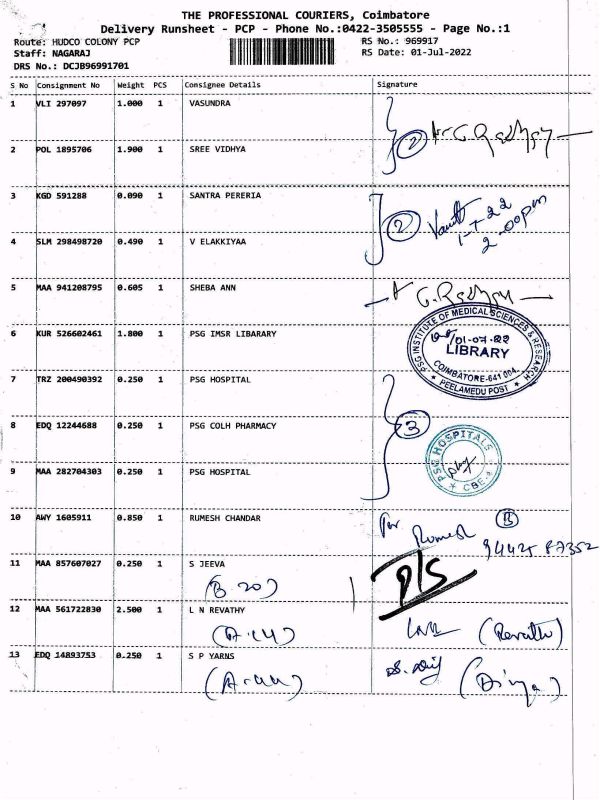 THE PROFESSIONAL COURIERS, Coimbatore
Delivery Runsheet - PCP - Phone No.:0422-3505555 - Page No.:1
Route: HUDCO COLONY PCP RS No.: 969917
Staff: NAGARAJ RS Date: 01-Jul-2022
DRS No.: DCJB96991701
S No Consignment No Weight PCS Consignee Details Signature
1 VLI 297097 1.000 1 VASUNDRA
2 POL 1895706 1.900 1 SREE VIDHYA
2
3 KGD 591288 0.090 1 SANTRA PERERIA
2
1-7-22
2.00pm
4 SLM 298498720 0.490 1 V ELAKKIYAA
5 MAA 941208795 0.605 1 SHEBA ANN
6 KUR 526602461 1.800 1 PSG IMSR LIBARARY
PSG INSTITUTE OF MEDICAL SCIENCES & RESEARCH
01-07-22
LIBRARY
COIMBATORE-641 004.
PEELAMEDU POST
7 TRZ 200490392 0.250 1 PSG HOSPITAL
8 EDQ 12244688 0.250 1 PSG COLH PHARMACY
3
PSG HOSPITALS
CBE
9 MAA 282704303 0.250 1 PSG HOSPITAL
10 AWY 1605911 0.850 1 RUMESH CHANDAR
For Rumesh B
94425 87352
11 MAA 857607027 0.250 1 S JEEVA
(B 20)
P/S
12 MAA 561722830 2.500 1 L N REVATHY
(A-14) (Revathi)
13 EDQ 14893753 0.250 1 S P YARNS
(A-44) (Divya)